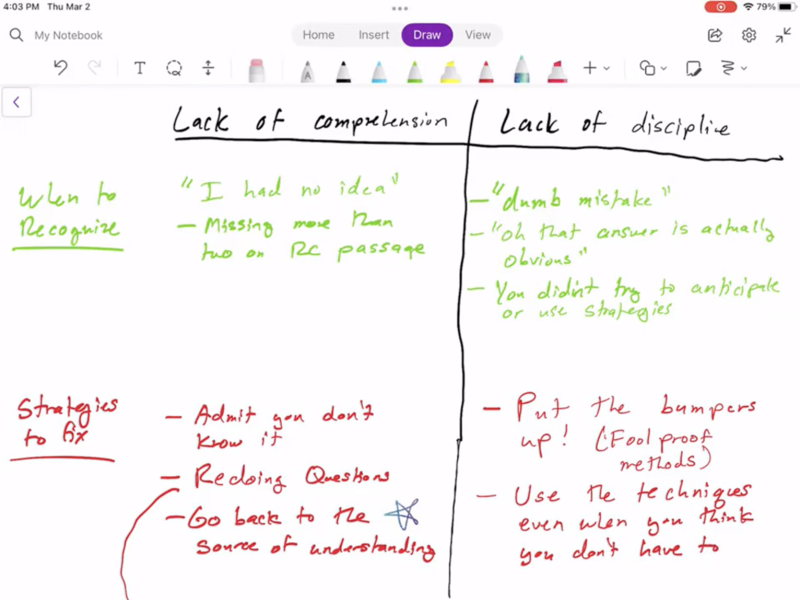 4:03 PM Thu Mar 2
79%
My Notebook
Home Insert Draw View
T
A
Lack of comprehension
Lack of discipline
When to
Recognize
"I had no idea"
– Missing more than
two on RC passage
– "dumb mistake"
– "oh that answer is actually
obvious"
– You didn't try to anticipate
or use strategies
Strategies
to fix
– Admit you don't
know it
– Redoing Questions
– Go back to the
source of understanding
– Put the bumpers
up! (Fool proof
methods)
– Use the techniques
even when you think
you don't have to